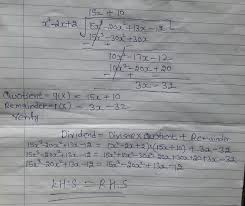 15x + 10
x²-2x+2 √15x³-20x²+13x-12
15x³-30x²+30x
10x²-17x-12
10x²-20x+20
3x-32
Quotient = q(x) = 15x + 10
Remainder = r(x) = 3x - 32
Verify
Dividend = Divisor × Quotient + Remainder
15x³-20x²+13x-12 = (x²-2x+2)(15x+10) + 3x-32
15x³-20x²+13x-12 = 15x³+10x²-30x²-20x+30x+20+3x-32
15x³-20x²+13x-12 = 15x³-20x²+13x-12
L.H.S = R.H.S